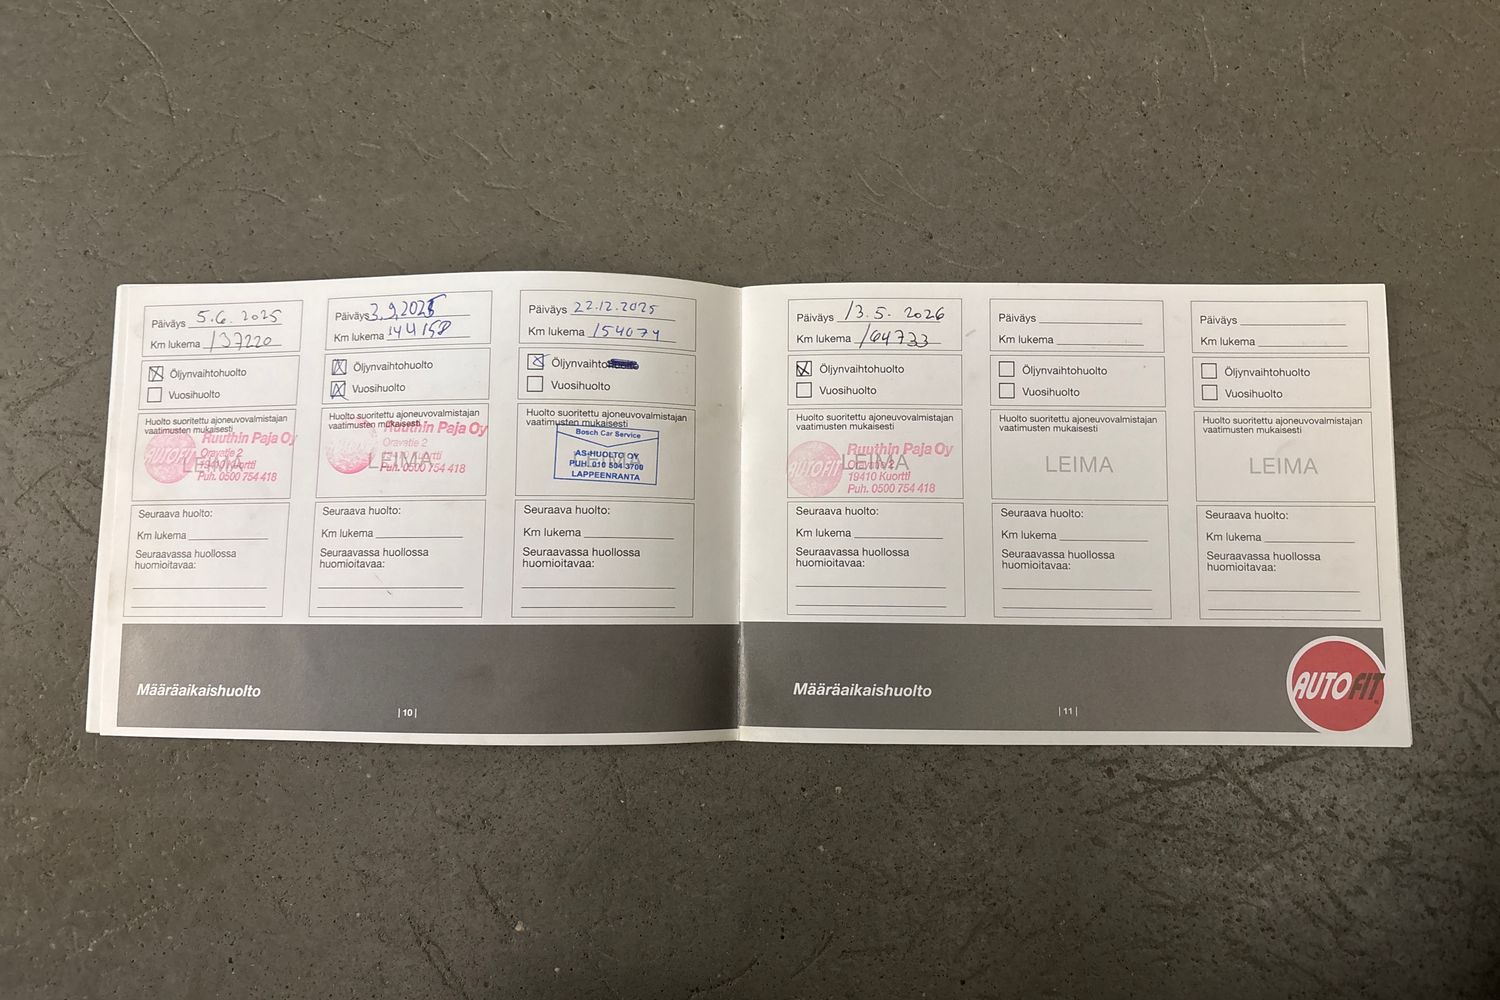 Päiväys 5.6.2025
Km lukema 137220
Öljynvaihtohuolto
Vuosihuolto
Huolto suoritettu ajoneuvovalmistajan
vaatimusten mukaisesti
LEIMA
Ruuthin Paja Oy
Oravatie 2
19410 Kuortti
Puh. 0500 754 418
Seuraava huolto:
Km lukema
Seuraavassa huollossa
huomioitavaa:
Päiväys 3.9.2025
Km lukema 144158
Öljynvaihtohuolto
Vuosihuolto
Huolto suoritettu ajoneuvovalmistajan
vaatimusten mukaisesti
LEIMA
Ruuthin Paja Oy
Oravatie 2
Puh. 0500 754 418
Seuraava huolto:
Km lukema
Seuraavassa huollossa
huomioitavaa:
Päiväys 22.12.2025
Km lukema 154074
Öljynvaihto
Vuosihuolto
Huolto suoritettu ajoneuvovalmistajan
vaatimusten mukaisesti
Bosch Car Service
AS-HUOLTO OY
PUH. 010 504 3700
LAPPEENRANTA
Seuraava huolto:
Km lukema
Seuraavassa huollossa
huomioitavaa:
Määräaikaishuolto
| 10 |
Päiväys 13.5.2026
Km lukema 164733
Öljynvaihtohuolto
Vuosihuolto
Huolto suoritettu ajoneuvovalmistajan
vaatimusten mukaisesti
LEIMA
AUTOFIT
Ruuthin Paja Oy
Oravatie 2
19410 Kuortti
Puh. 0500 754 418
Seuraava huolto:
Km lukema
Seuraavassa huollossa
huomioitavaa:
Päiväys
Km lukema
Öljynvaihtohuolto
Vuosihuolto
Huolto suoritettu ajoneuvovalmistajan
vaatimusten mukaisesti
LEIMA
Seuraava huolto:
Km lukema
Seuraavassa huollossa
huomioitavaa:
Päiväys
Km lukema
Öljynvaihtohuolto
Vuosihuolto
Huolto suoritettu ajoneuvovalmistajan
vaatimusten mukaisesti
LEIMA
Seuraava huolto:
Km lukema
Seuraavassa huollossa
huomioitavaa:
Määräaikaishuolto
| 11 |
AUTOFIT